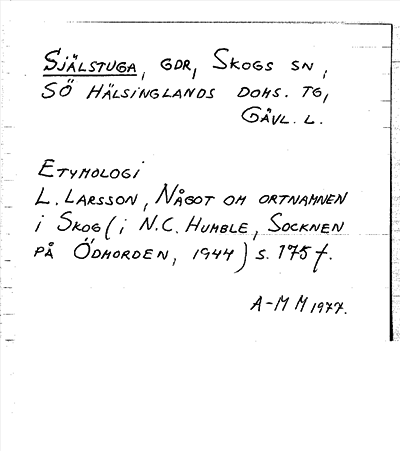 SJÄLSTUGA, GDR, SKOGS SN,
SÖ HÄLSINGLANDS DOMS. TG,
GÄVL. L.
ETYMOLOGI
L. LARSSON, NÅGOT OM ORTNAMNEN
i SKOG (i N.C. HUMBLE, SOCKNEN
PÅ ÖDMORDEN, 1944) s. 175 f.
A-M M 1977.